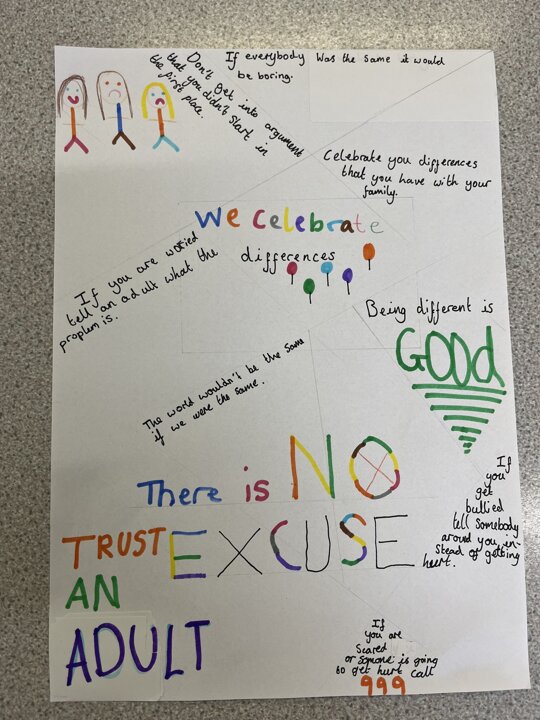 If everybody was the same it would
be boring.
Don't get into argument
that you didn't start in
the first place.
Celebrate you differences
that you have with your
family.
We Celebrate
differences
If you are woried
tell an adult what the
proplem is.
Being different is
GOOd
The world wouldn't be the same
if we were the same.
There is NO
EXCUSE
If
you
get
bullied
tell Somebody
around you, in-
stead of getting
heart.
TRUST
AN
ADULT
If
you are
Scared
or someone is going
to get hurt call
999